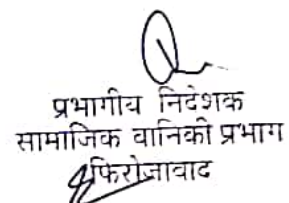 प्रभागीय निदेशक
सामाजिक वानिकी प्रभाग
फिरोजाबाद